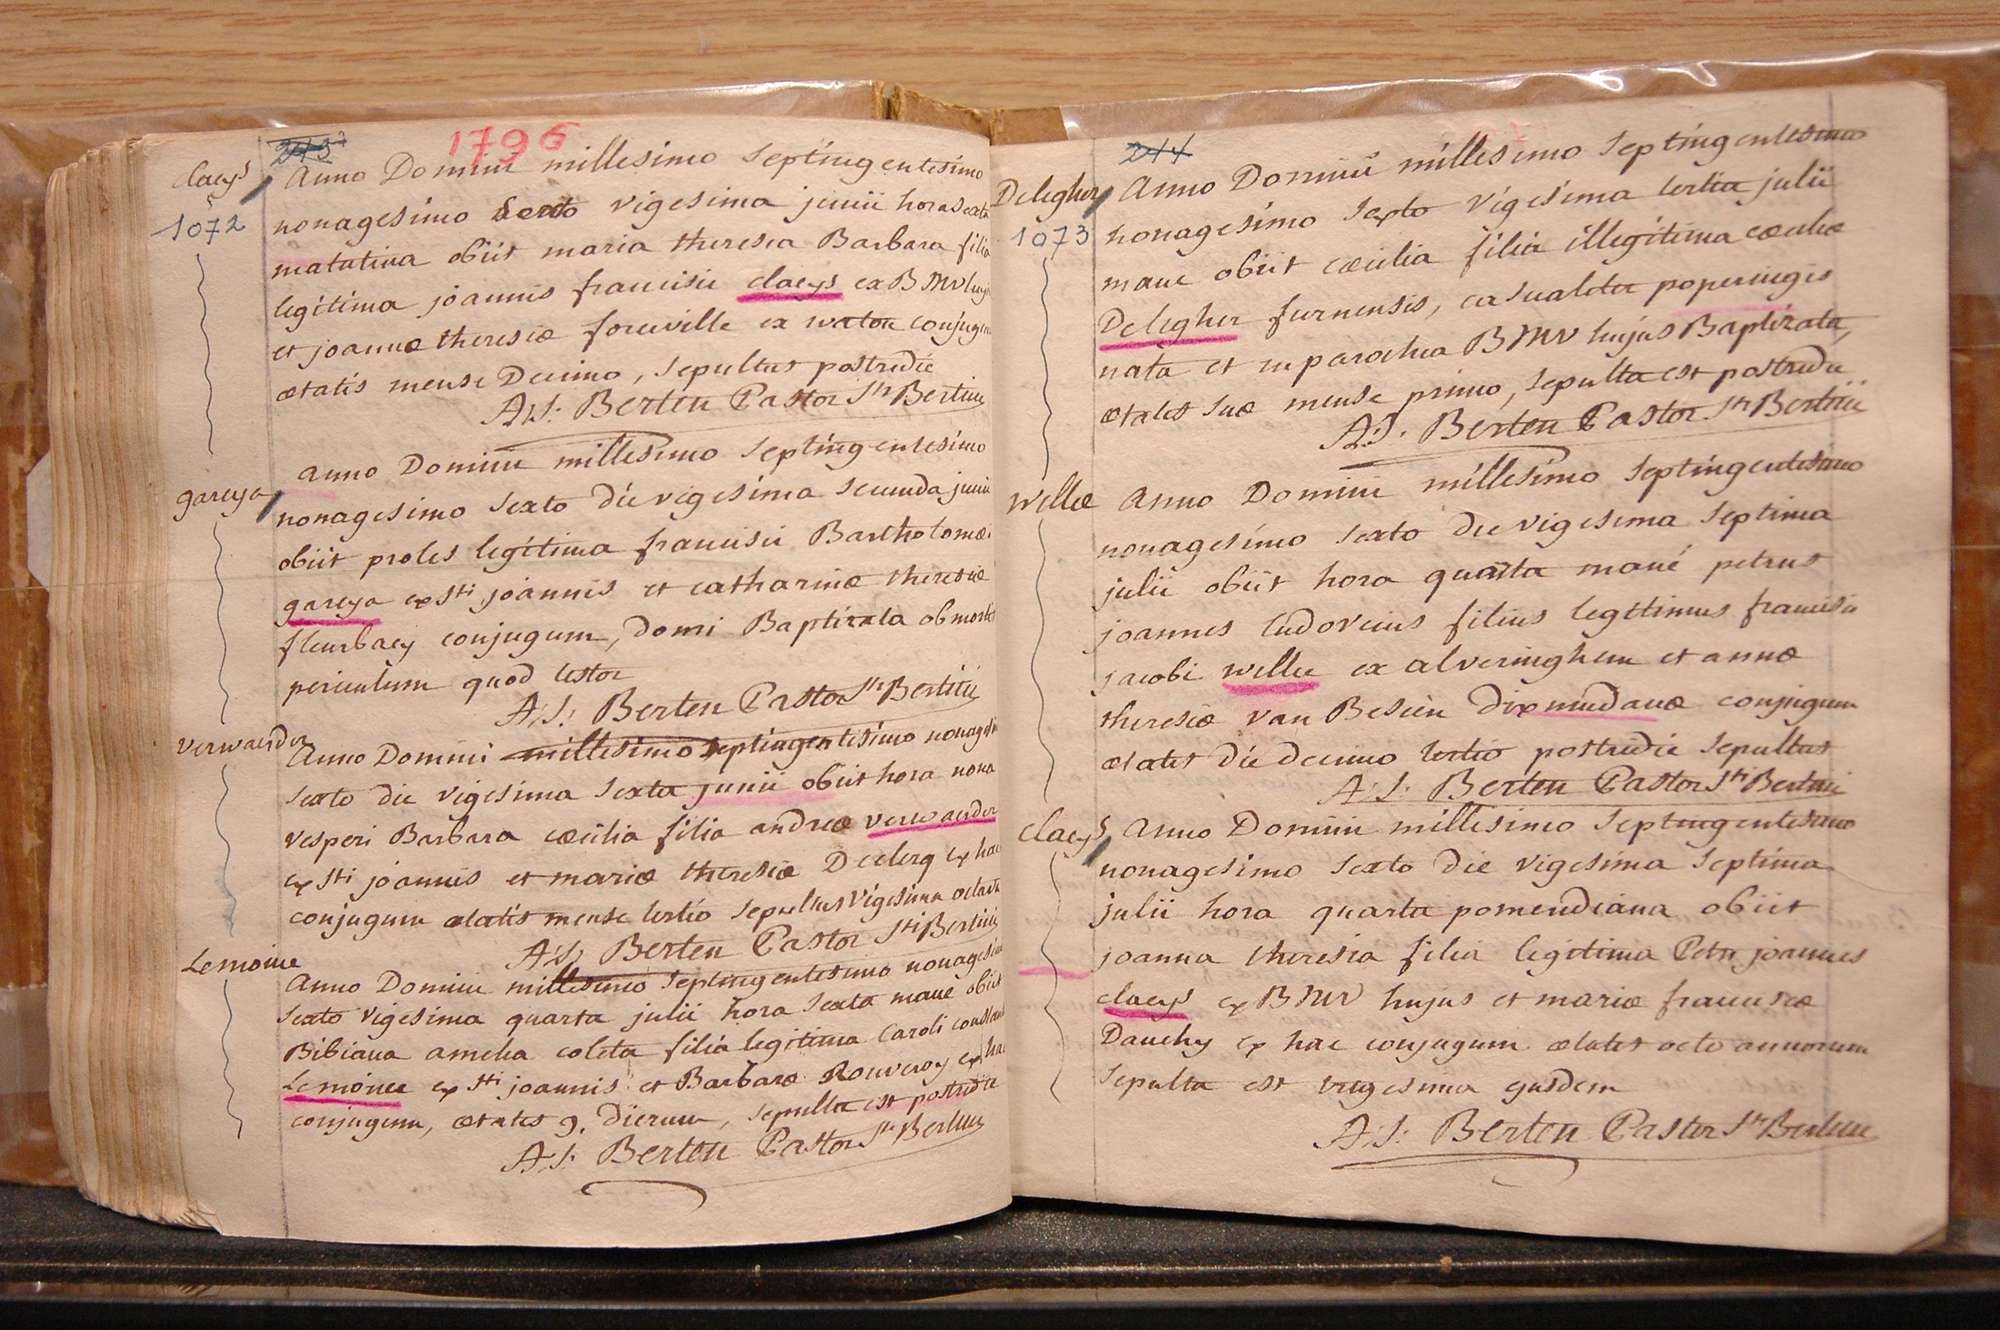 243
1796
Claeys
1072
Anno Domini millesimo septingentesimo
nonagesimo sexto vigesima junii hora sexta
matutina obiit maria theresia Barbara filia
legitima joannis francisci claeys ex BMV hujus
et joannæ theresiæ foreville ex waton conjugum
ætatis mense Decimo, sepultus postredie
A:J: Berten Pastor Sti Bertini
gareya
anno Domini millesimo septingentesimo
nonagesimo sexto die vigesima secunda junii
obiit proles legitima francisci Bartholomæi
gareya ex sti joannis et catharinæ theresiæ
fleurbaey conjugum, domi Baptizata ob mortis
periculum quod testor
A:J: Berten Pastor Sti Bertini
verwaerder
Anno Domini millesimo septingentesimo nonagesimo
sexto die vigesima sexta junii obiit hora nona
vesperi Barbara cæcilia filia andreæ verwaerder
ex sti joannis et mariæ theresiæ Declerq ex hac
conjugum ætatis mense tertio sepultus vigesima octava
A:J: Berten Pastor Sti Bertini
Lemoine
Anno Domini millesimo septingentesimo nonagesimo
sexto vigesima quarta julii hora sexta mane obiit
Bibiana amelia coleta filia legitima Caroli
Lemoinee ex sti joannis et Barbaræ Rouveroy ex hac
conjugum, ætatis 9. dierum, sepulta est postredie
A:J: Berten Pastor Sti Bertini
244
Delegher
1073
Anno Domini millesimo septingentesimo
nonagesimo sexto vigesima tertia julii
mane obiit cæcilia filia illegitima cæciliæ
Delegher furnensis, casualeter poperingis
nata et in parochia BMV hujus Baptizata,
ætatis suæ mense primo, sepulta est postredie
A:J: Berten Pastor Sti Bertini
willie
Anno Domini millesimo septingentesimo
nonagesimo sexto die vigesima septima
julii obiit hora quarta mané petrus
joannes ludovicus filius legitimus francisci
jacobi willie ex alveringhem et annæ
theresiæ van Besien dixmudanæ conjugum
ætatis die decimo tertio postredie sepultus
A:J: Berten Pastor Sti Bertini
claeys
Anno Domini millesimo septingentesimo
nonagesimo sexto die vigesima septima
julii hora quarta pomeridiana obiit
joanna theresia filia legitima Petri joannis
claeys ex BMV hujus et mariæ franciscæ
Dauchy ex hac conjugum ætatis octo annorum
sepulta est trigesima ejusdem
A:J: Berten Pastor Sti Bertini